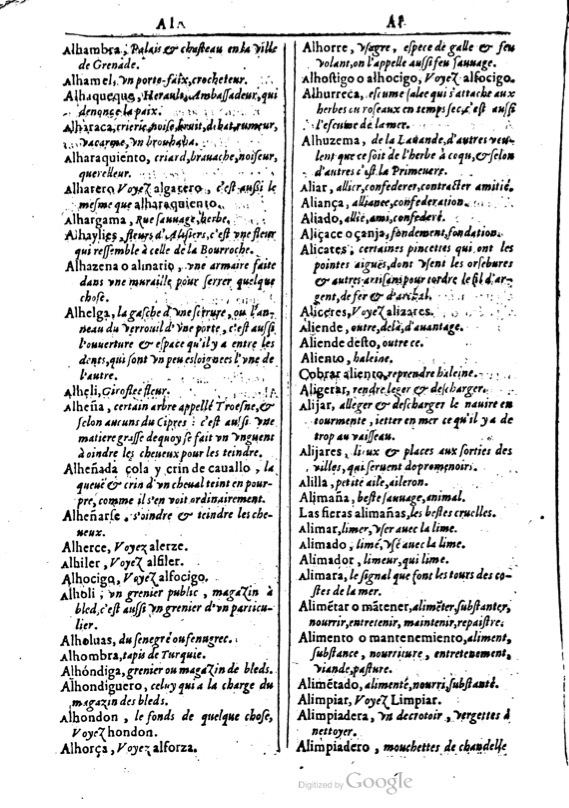 Ala
Alhambra, Palais & chasteau en la ville
de Grenade.
Alhamel, vn porto-faix, crocheteur.
Alhaqueque, Herault, Ambassadeur, qui
denonçe la paix.
Alharaca, crierie, noise, bruit, debat, rumeur,
vacarme, vn brouhaha.
Alharaquiento, criard, brauache, noiseur,
querelleur.
Alharero Voyez algarero, c'est aussi le
mesme que alharaquiento.
Alhargama, Rue sauuage, herbe.
Alhaylies, fleurs d'Alisiers, c'est vne fleur
qui ressemble à celle de la Bourroche.
Alhazena o almario, vne armaire faite
dans vne muraille pour serrer quelque
chose.
Alhelga, la gasche d'vne serrure, ou l'an-
neau du verrouil d'vne porte, c'est aussi
l'ouuerture & espace qu'il y a entre les
dents, qui sont vn peu esloignees l'vne de
l'autre.
Alheli, Giroflee fleur.
Alheña, certain arbre appellé Troesne, &
selon aucuns du Cipres: c'est aussi vne
matiere grasse dequoy se fait vn vnguent
à oindre les cheueux pour les teindre.
Alheñada cola y crin de cauallo, la
queuë & crin d'vn cheual teint en pour-
pre, comme il s'en voit ordinairement.
Alheñarse, s'oindre & teindre les che-
neux.
Alherce, Voyez alerze.
Alhiler, Voyez alfiler.
Alhocigo, Voyez alfocigo.
Alholi; vn grenier public, magazin à
bled, c'est aussi vn grenier d'vn particu-
lier.
Alholuas, du senegré ou senugrec.
Alhombra, tapis de Turquie.
Alhóndiga, grenier ou magazin de bleds.
Alhondiguero, celuy qui a la charge du
magazin des bleds.
Alhondon, le fonds de quelque chose,
Voyez hondon.
Alhorça, Voyez alforza.
Al
Alhorre, vsagre, espece de galle & feu
volant, on l'appelle aussi feu sauuage.
Alhostigo o alhocigo, Voyez alfocigo.
Alhurreca, escume salee qui s'attache aux
herbes ou roseaux en temps sec, c'est aussi
l'escume de la mer.
Alhuzema, de la Lauande, d'autres veu-
lent que ce soit de l'herbe à coqu, & selon
d'autres c'est la Primeuere.
Aliar, allier, confederer, contracter amitié.
Aliança, alliance, confederation.
Aliado, allié, ami, confederé.
Aliçace o çanja, fondement, fondation.
Alicates, certaines pincettes qui ont les
pointes aiguës, dont vsent les orfebures
& autres artisans pour tordre le fil d'ar-
gent, de fer & d'archal.
Aliceres, Voyez alizares.
Aliende, outre, delà, d'auantage.
Aliende desto, outre ce.
Aliento, haleine.
Cobrar aliento, reprendre haleine.
Aligerar, rendre leger & descharger.
Alijar, alleger & descharger le nauire en
tourmente, ietter en mer ce qu'il y a de
trop au vaisseau.
Alijares, lieux & places aux sorties des
villes, qui seruent de promenoirs.
Alilla, petite aile, aileron.
Alimaña, beste sauuage, animal.
Las fieras alimañas, les bestes cruelles.
Alimar, limer, vser auec la lime.
Alimado, limé, vsé auec la lime.
Alimador, limeur, qui lime.
Alimara, le signal que font les tours des co-
stes de la mer.
Alimētar o mātener, alimēter, substanter,
nourrir, entretenir, maintenir, repaistre.
Alimento o mantenemiento, aliment,
substance, nourriture, entretenement,
viande, pasture.
Alimētado, alimenté, nourri, substanté.
Alimpiar, Voyez Limpiar.
Alimpiadera, vn decrotoir, vergettes à
nettoyer.
Alimpiadero, mouchettes de chandelle
Digitized by Google